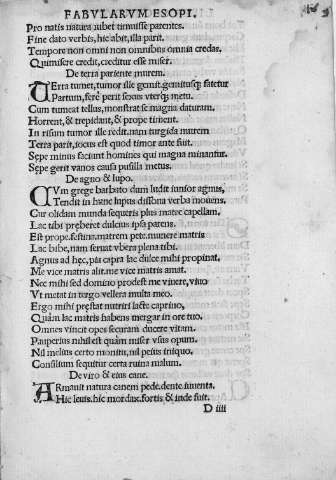 FABVLARVM ESOPI.
Pro natis natura iubet timuisse parentes.
Fine dato verbis, hic abit, illa parit.
Tempore non omni non omnibus omnia credas.
Qui misere credit, creditur esse miser.
De terra pariente murem.
TErra tumet, tumor ille gemit, gemitusque fatetur
Partum, fere perit sexus vterque metu.
Cum tumeat tellus, monstrat se magna daturam.
Horrent, & trepidant, & prope timent.
In risum tumor ille redit. nam turgida murem
Terra parit, iocus est quod timor ante fuit.
Sepe minus faciunt homines qui magna minantur.
Sepe gerit vanos causa pusilla metus.
De agno & lupo.
CVm grege barbato dum ludit iunior agnus,
Tendit in hanc lupus dissona verba mouens.
Cur olidam munda sequeris plus matre capellam,
Lac tibi preberet dulcius ipsa parens.
Est prope. festina. matrem pete. muuere matris
Lac bibe, nam seruat vbera plena tibi.
Agnus ad hec, pia capra lac dulce mihi propinat.
Me vice matris alit. me vice matris amat.
Nec mihi sed domino prodest me viuere, viuo
Vt metat in tergo vellera multa meo.
Ergo mihi prestat nutriri lacte caprino,
Quàm lac matris habens mergar in ore tuo.
Omnes vincit opes securam ducere vitam.
Pauperius nihil est quàm miser vsus opum.
Nil melius certo monitu, nil peius iniquo,
Consilium sequitur certa ruina malum.
De viro & eius cane.
ARmauit natura canem pede. dente. iuuenta.
Hic leuis. hic mordax. fortis & inde fuit.
D iiii